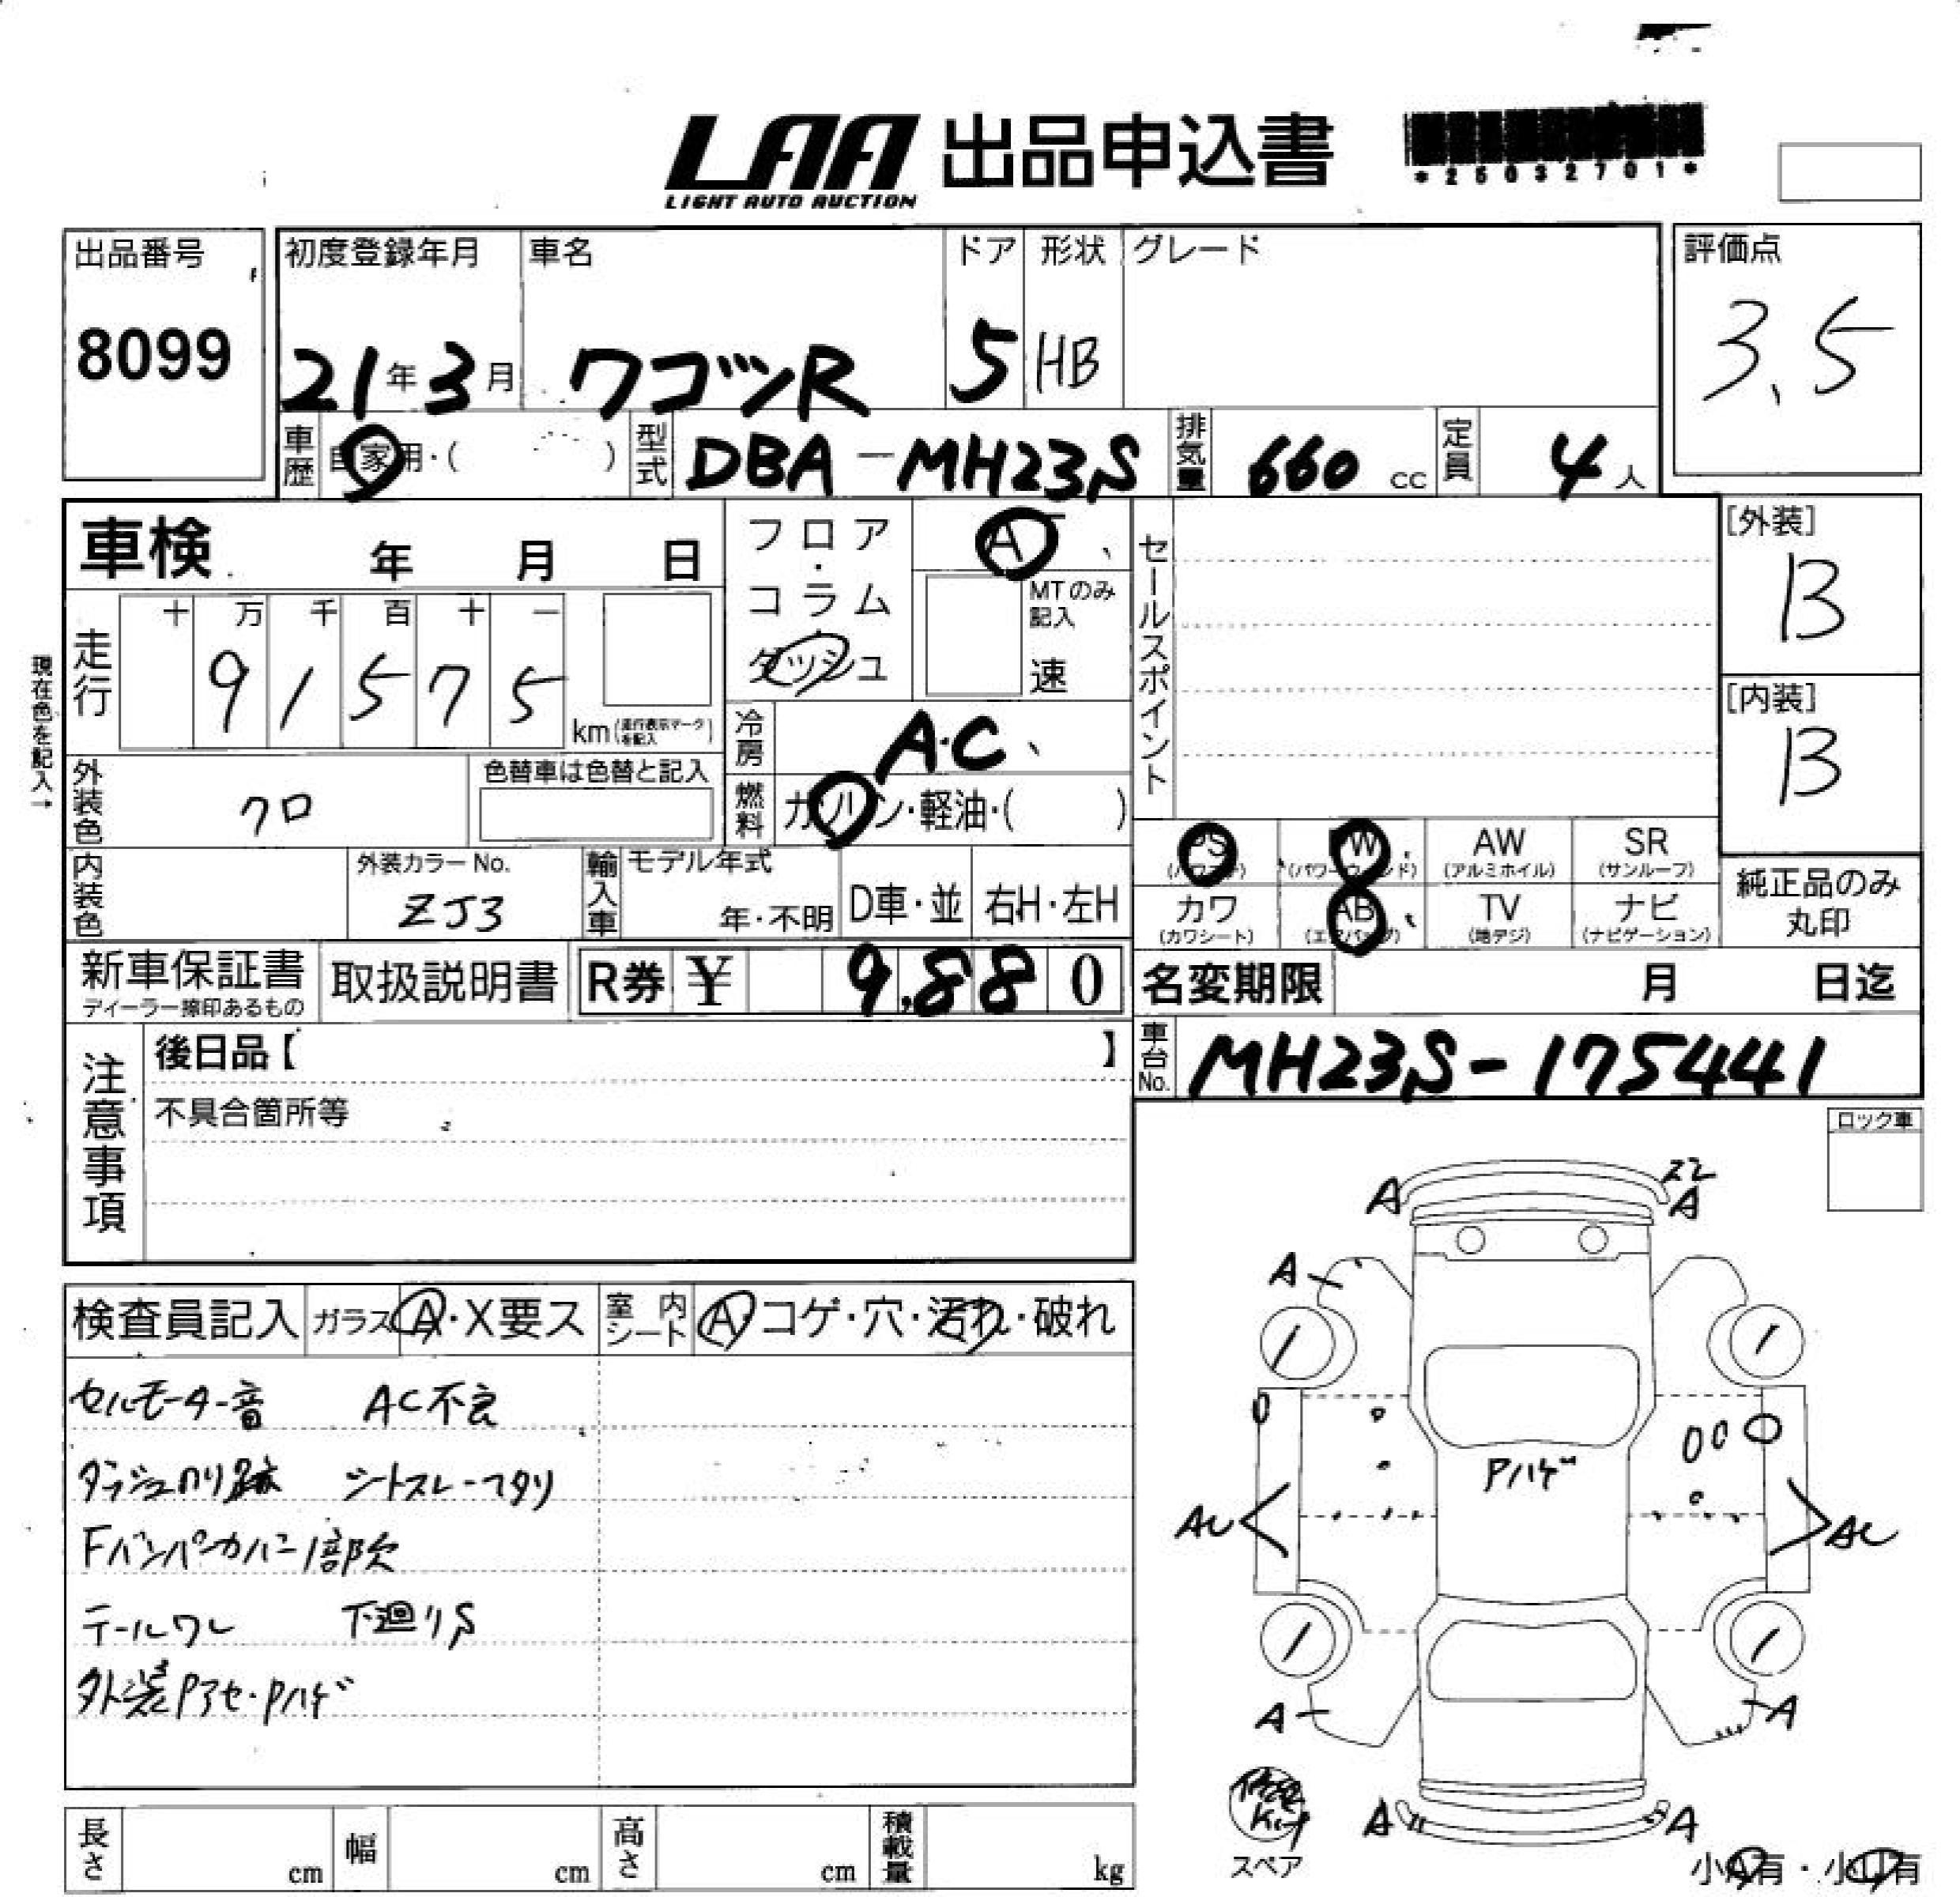 LAA 出品申込書
LIGHT AUTO AUCTION
*25032701*
出品番号
8099
初度登録年月
21年3月
車名
ワゴンR
ドア
5
形状
HB
グレード
評価点
3.5
車歴 自家用・( )
型式 DBA-MH23S
排気量 660 cc
定員 4人
車検 年 月 日
フロア・コラム ダッシュ
A
MTのみ記入
速
セールスポイント
[外装]
B
[内装]
B
現在色を記入→
走行 十 万 千 百 十 一
9 1 5 7 5 km (走行表示マークを記入)
冷房 A・C
燃料 ガソリン・軽油・( )
外装色 クロ
色替車は色替と記入
内装色
外装カラーNo.
ZJ3
輸入車 モデル年式
年・不明
D車・並
右H・左H
PS (パワステ)
PW (パワーウィンド)
AW (アルミホイル)
SR (サンルーフ)
カワ (カワシート)
AB (エアバッグ)
TV (地デジ)
ナビ (ナビゲーション)
純正品のみ
丸印
新車保証書
ディーラー捺印あるもの
取扱説明書
R券 ¥ 9,880
名変期限 月 日迄
車台No. MH23S-175441
注意事項
後日品【 】
不具合箇所等
ロック車
検査員記入 ガラス A・X要ス
室内シート A・コゲ・穴・汚れ・破れ
セルモーター音 AC不良
ダッシュのり跡 シートスレ-フタリ
Fバンパーカバー1部欠
テールワレ 下廻りS
外装Pアセ・Pハゲ
A
A
A
AU
Pハゲ
A
A
A
A
スペア
小A有・小U有
長さ cm
幅 cm
高さ cm
積載量 kg